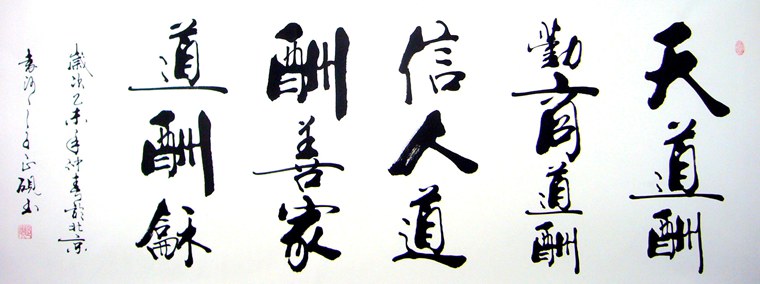 天道酬
勤商道酬
信人道
酬善家
道酬龢
歲次乙未年仲春於北京